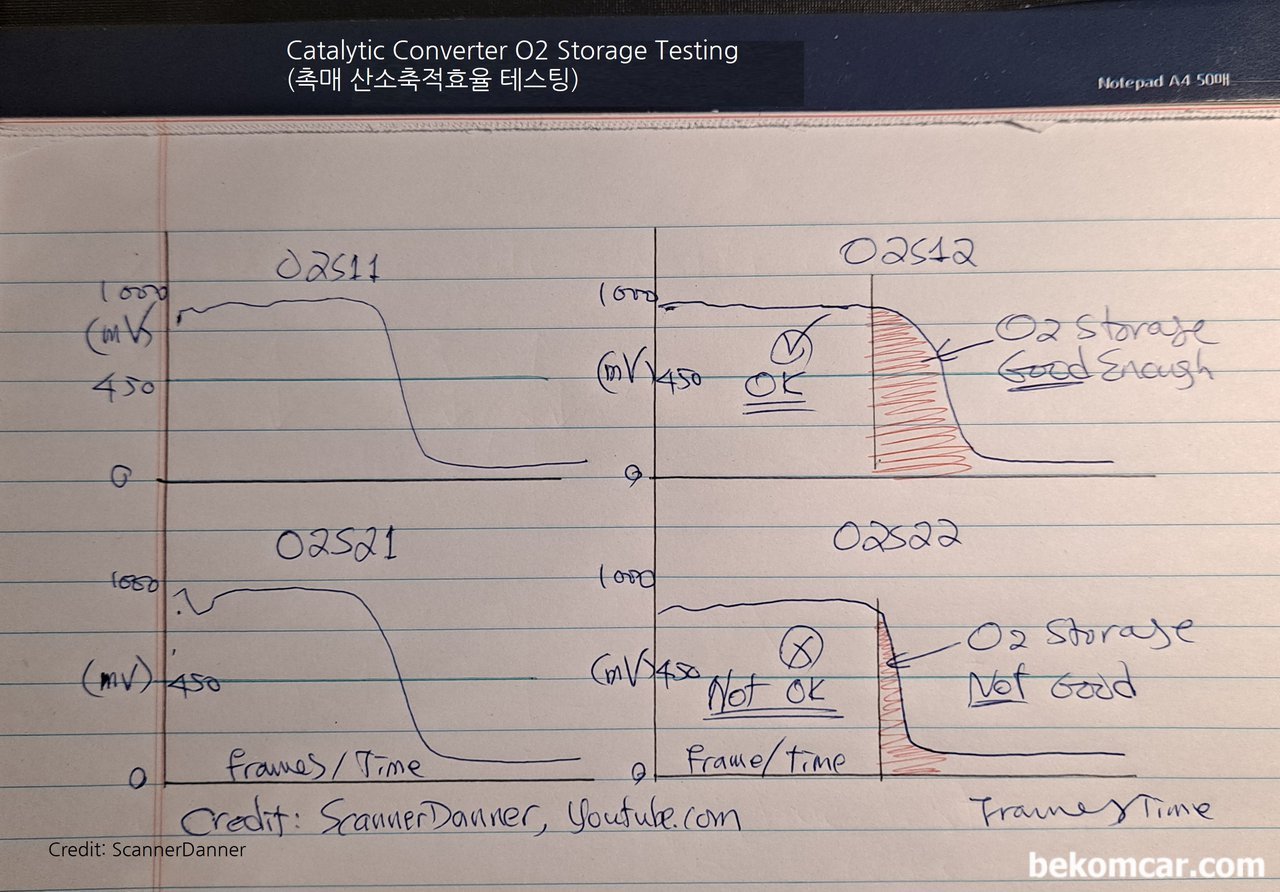 Catalytic Converter O2 Storage Testing
(촉매 산소축적효율 테스팅)
Notepad A4 50매
O2S11
1000
(mV)
450
0
O2S12
1000
(mV) 450
OK
O2 Storage
Good Enough
0
O2S21
1000
(mV) 450
Frames/Time
0
O2S22
1000
(mV) 450
Not OK
O2 Storage
Not Good
Frame/time
0
Frames/Time
Credit: ScannerDanner, Youtube.com
Credit: ScannerDanner
bekomcar.com